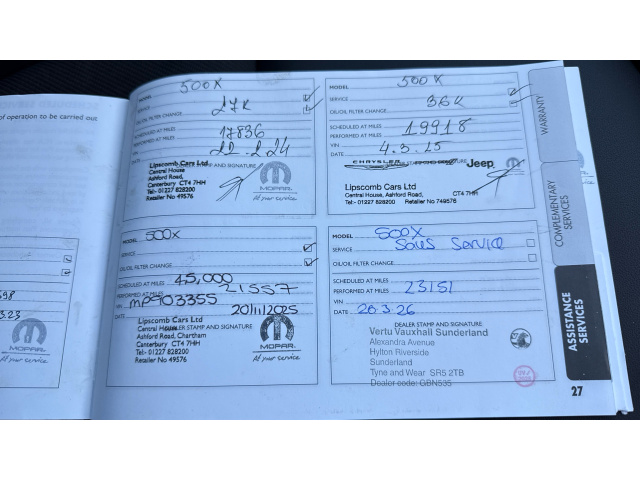 of operation to be carried out
3.23
MOPAR
At your service
MODEL 500X
SERVICE 27K
OIL/OIL FILTER CHANGE
SCHEDULED AT MILES 17836
PERFORMED AT MILES
DATE
Lipscomb Cars Ltd
Central House
Ashford Road,
Canterbury CT4 7HH
Tel:- 01227 828200
Retailer No 49576
MOPAR
At your service
MODEL 500X
SERVICE 36K
OIL/OIL FILTER CHANGE
SCHEDULED AT MILES 19918
PERFORMED AT MILES
VIN
DATE 4.3.25
CHRYSLER Jeep
Lipscomb Cars Ltd
Central House, Ashford Road, CT4 7HH
Tel:- 01227 828200 Retailer No 749576
MODEL 500X
SERVICE
OIL/OIL FILTER CHANGE
SCHEDULED AT MILES 45,000
PERFORMED AT MILES 21557
VIN MP903355
DATE 20/11/2025
DEALER STAMP AND SIGNATURE
Lipscomb Cars Ltd
Central House
Ashford Road, Chartham
Canterbury CT4 7HH
Tel:- 01227 828200
Retailer No 49576
MOPAR
At your service
MODEL 500X
SERVICE Sales Service
OIL/OIL FILTER CHANGE
SCHEDULED AT MILES
PERFORMED AT MILES 23151
VIN
DATE 20.3.26
DEALER STAMP AND SIGNATURE
Vertu Vauxhall Sunderland
Alexandra Avenue
Hylton Riverside
Sunderland
Tyne and Wear SR5 2TB
Dealer code: GBN535
WARRANTY
COMPLEMENTARY
SERVICES
ASSISTANCE
SERVICES
27